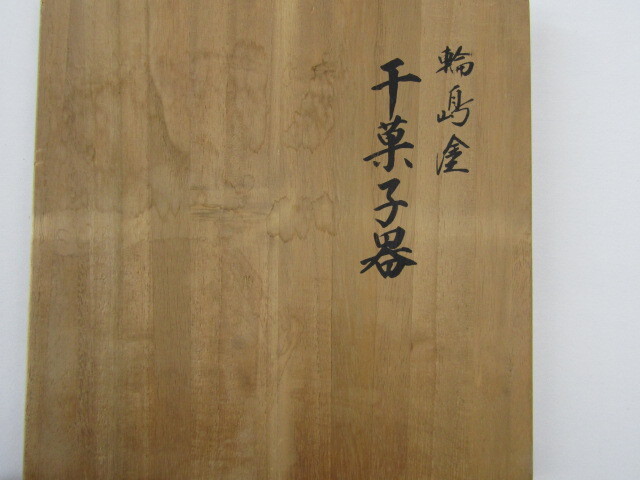 輪島塗
干菓子器